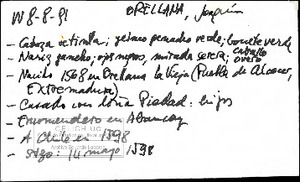 W 8-8-81 ORELLANA, Joaquín
- Cabeza ; penacho verde; bonete verde
- Nariz gancho; ojos negros, mirada severa; caballo overo
- Nacido 1568 en Orellana la Vieja (Puebla de Alcocer, Extremadura)
- Casado con doña Piedad: hijos
- Encomendero en Abancay
- A Chile en 1598
- : 14 mayo 1598